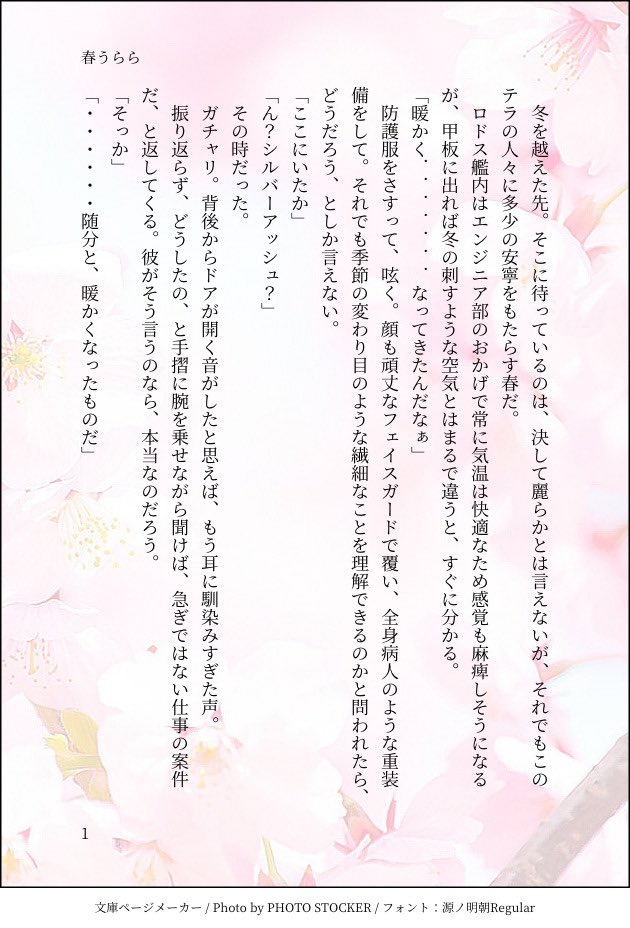 春うらら
　冬を越えた先。そこに待っているのは、決して麗らかとは言えないが、それでもこの
テラの人々に多少の安寧をもたらす春だ。
　ロドス艦内はエンジニア部のおかげで常に気温は快適なため感覚も麻痺しそうになる
が、甲板に出れば冬の刺すような空気とはまるで違うと、すぐに分かる。
「暖かく・・・・・・・なってきたんだなぁ」
　防護服をさすって、呟く。顔も頑丈なフェイスガードで覆い、全身病人のような重装
備をして。それでも季節の変わり目のような繊細なことを理解できるのかと問われたら、
どうだろう、としか言えない。
「ここにいたか」
「ん？シルバーアッシュ？」
　その時だった。
　ガチャリ。背後からドアが開く音がしたと思えば、もう耳に馴染みすぎた声。
　振り返らず、どうしたの、と手摺に腕を乗せながら聞けば、急ぎではない仕事の案件
だ、と返してくる。彼がそう言うのなら、本当なのだろう。
「そっか」
「・・・・・・随分と、暖かくなったものだ」
1
文庫ページメーカー / Photo by PHOTO STOCKER / フォント：源ノ明朝Regular